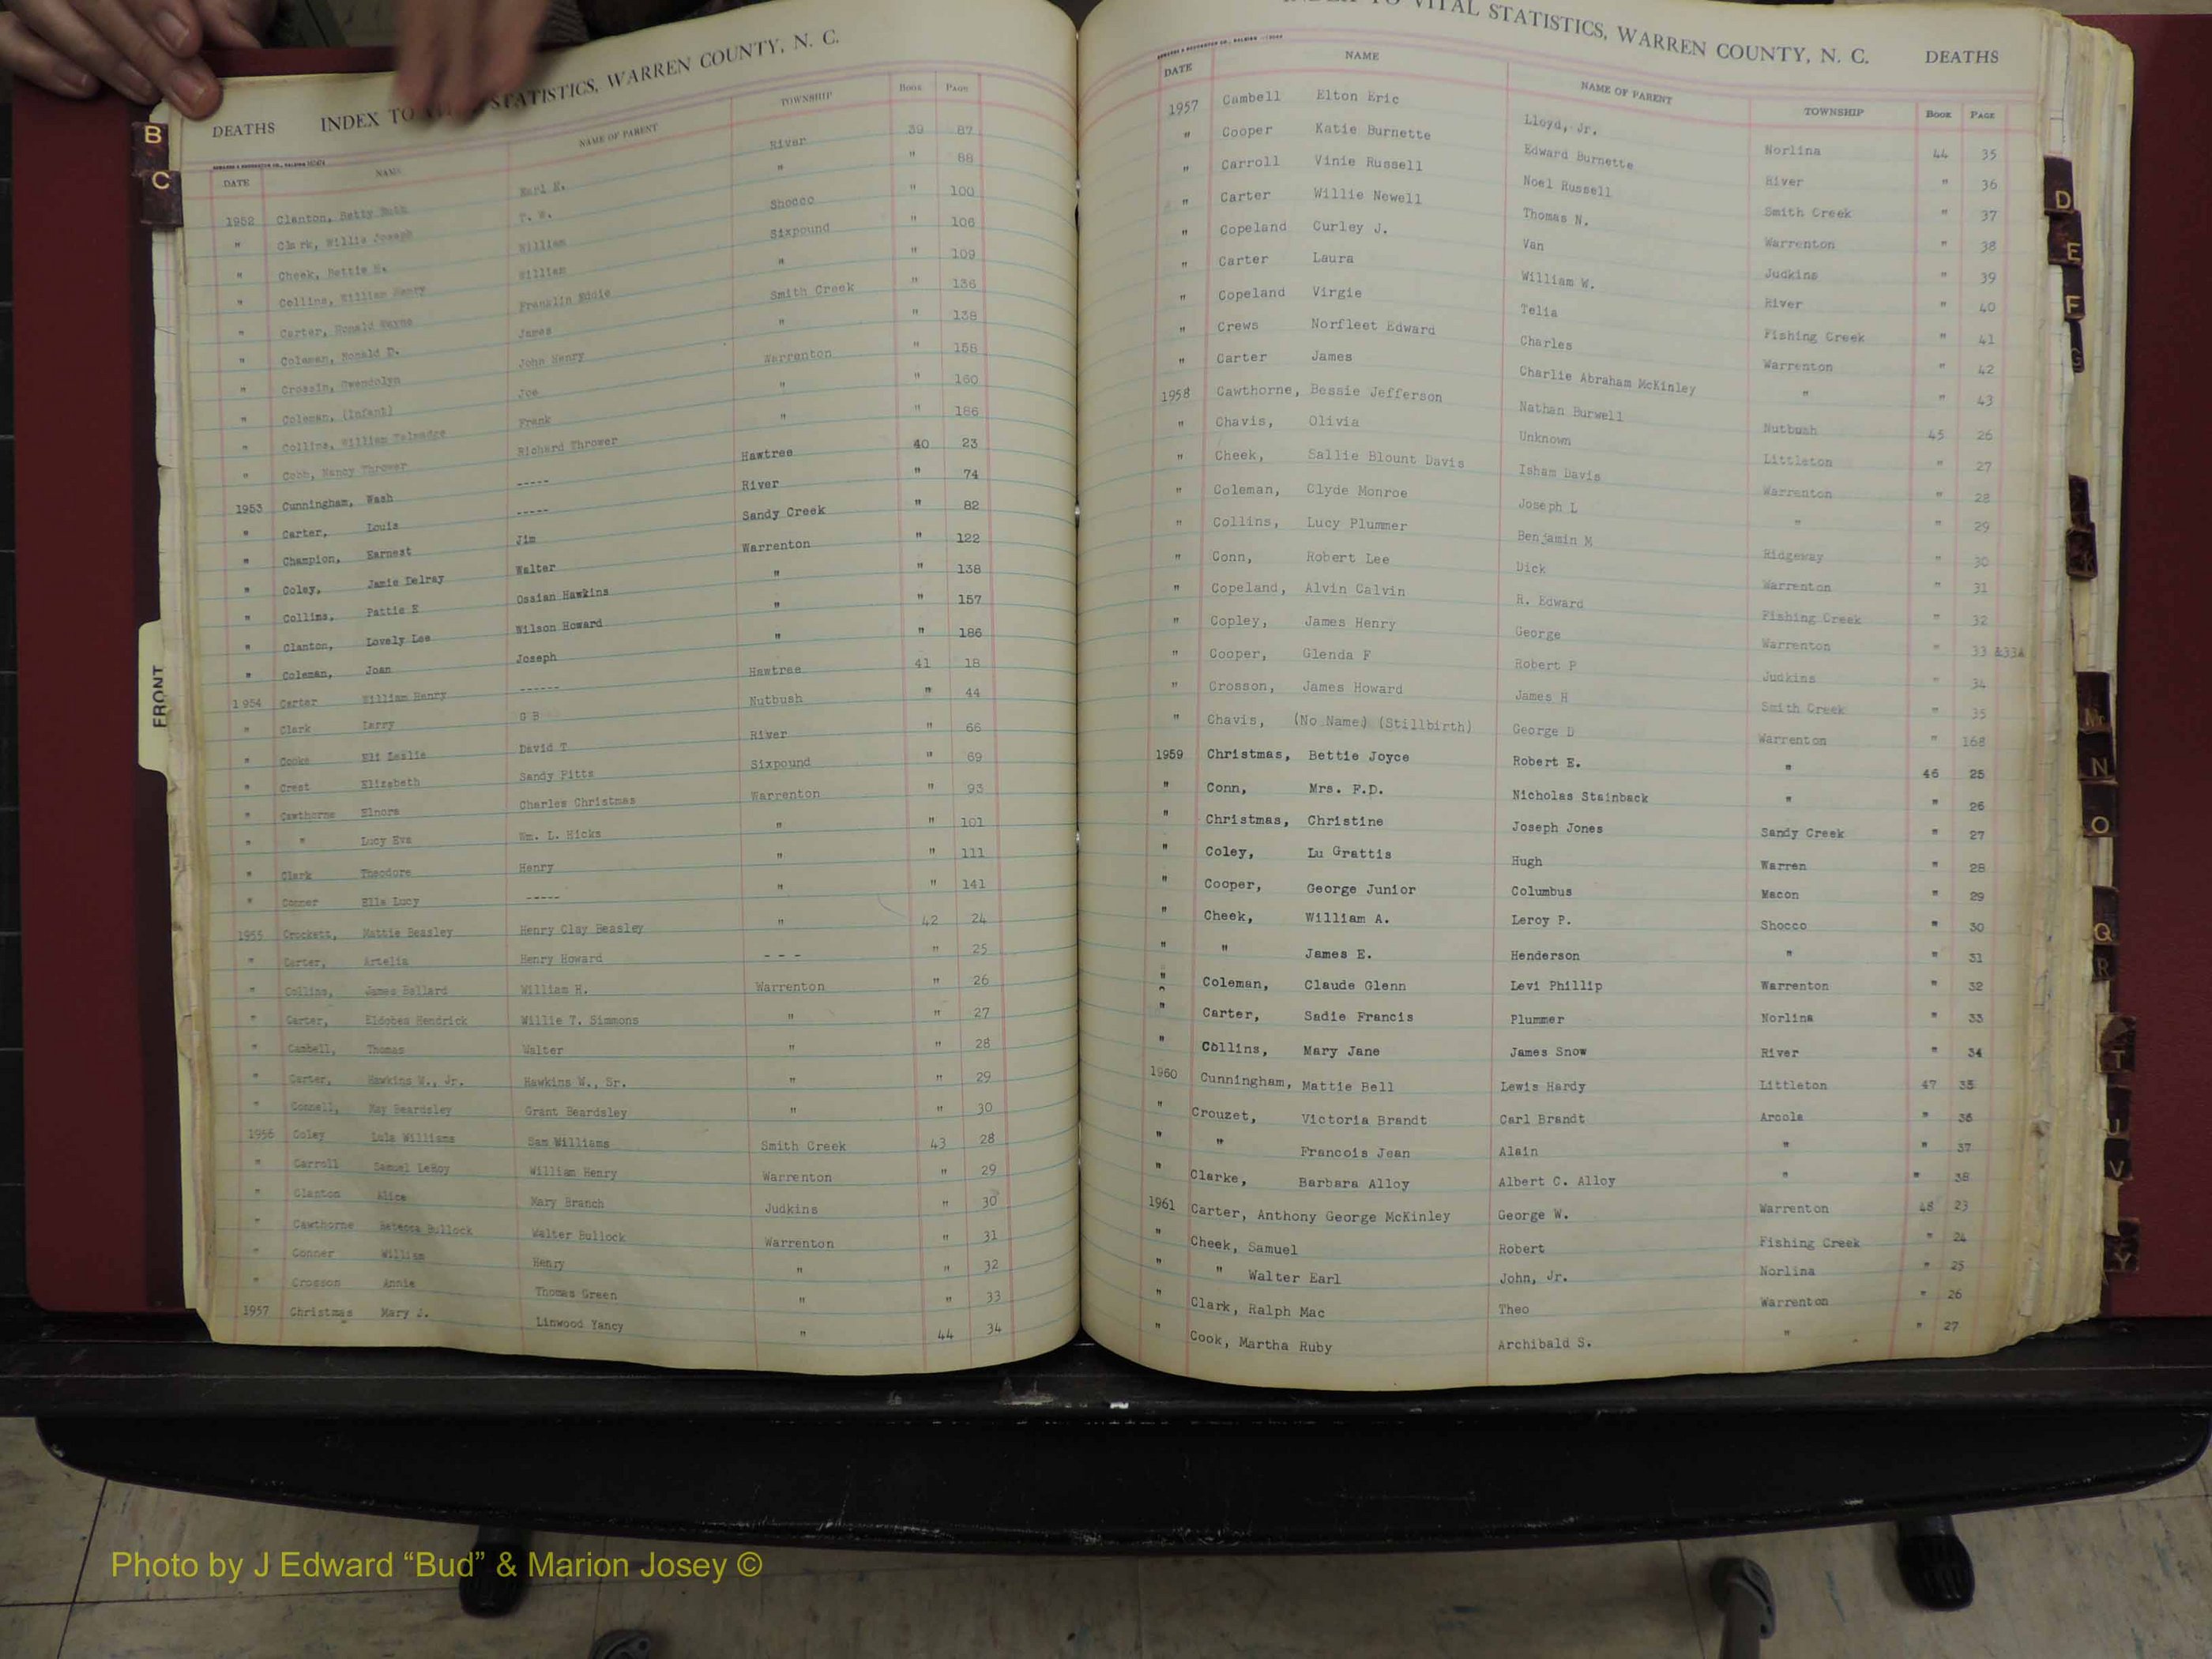 DEATHS INDEX TO STATISTICS, WARREN COUNTY, N. C.
DATE NAME NAME OF PARENT TOWNSHIP BOOK PAGE
1952 Clanton, Betty Ruth Earl E. River 39 87
" Clark, Willie Joseph T. W. " " 88
" Cheek, Bettie H. William Shocco " 100
" Collins, William Henry William Sixpound " 106
" Carter, Ronald Wayne Franklin Eddie " " 109
" Coleman, Ronald D. James Smith Creek " 136
" Crossin, Gwendolyn John Henry " " 138
" Coleman, (Infant) Joe Warrenton " 158
" Collins, William Talmadge Frank " " 160
" Cobb, Nancy Thrower Richard Thrower " " 186
1953 Cunningham, Wash ----- Hawtree 40 23
" Carter, Louis ----- River " 74
" Champion, Earnest Jim Sandy Creek " 82
" Coley, Jamie Delray Walter Warrenton " 122
" Collins, Pattie E Ossian Hawkins " " 138
" Clanton, Lovely Lee Wilson Howard " " 157
" Coleman, Joan Joseph " " 186
1954 Carter William Henry ------ Hawtree 41 18
" Clark Larry G B Nutbush " 44
" Cooke Eli Leslie David T River " 66
" Crest Elizabeth Sandy Pitts Sixpound " 69
" Cawthorne Elnora Charles Christmas Warrenton " 93
" " Lucy Eva Wm. L. Hicks " " 101
" Clark Theodore Henry " " 111
" Conner Ella Lucy ----- " " 141
1955 Crockett, Mattie Beasley Henry Clay Beasley " 42 24
" Carter, Artelia Henry Howard - - - " 25
" Collins, James Ballard William H. Warrenton " 26
" Carter, Eldobes Hendrick Willie T. Simmons " " 27
" Cambell, Thomas Walter " " 28
" Carter, Hawkins W., Jr. Hawkins W., Sr. " " 29
" Connell, May Beardsley Grant Beardsley " " 30
1956 Coley Lula Williams Sam Williams Smith Creek 43 28
" Carroll Samuel LeRoy William Henry Warrenton " 29
" Clanton Alice Mary Branch Judkins " 30
" Cawthorne Rebecca Bullock Walter Bullock Warrenton " 31
" Conner William Henry " " 32
" Crosson Annie Thomas Green " " 33
1957 Christmas Mary J. Linwood Yancy " 44 34
INDEX TO VITAL STATISTICS, WARREN COUNTY, N. C. DEATHS
DATE NAME NAME OF PARENT TOWNSHIP BOOK PAGE
1957 Cambell Elton Eric Lloyd, Jr. Norlina 44 35
" Cooper Katie Burnette Edward Burnette River " 36
" Carroll Vinie Russell Noel Russell Smith Creek " 37
" Carter Willie Newell Thomas N. Warrenton " 38
" Copeland Curley J. Van Judkins " 39
" Carter Laura William W. River " 40
" Copeland Virgie Telia Fishing Creek " 41
" Crews Norfleet Edward Charles Warrenton " 42
" Carter James Charlie Abraham McKinley " " 43
1958 Cawthorne, Bessie Jefferson Nathan Burwell Nutbush 45 26
" Chavis, Olivia Unknown Littleton " 27
" Cheek, Sallie Blount Davis Isham Davis Warrenton " 28
" Coleman, Clyde Monroe Joseph L " " 29
" Collins, Lucy Plummer Benjamin M Ridgeway " 30
" Conn, Robert Lee Dick Warrenton " 31
" Copeland, Alvin Calvin R. Edward Fishing Creek " 32
" Copley, James Henry George Warrenton " 33 &33A
" Cooper, Glenda F Robert P Judkins " 34
" Crosson, James Howard James H Smith Creek " 35
" Chavis, (No Name) (Stillbirth) George D Warrenton " 168
1959 Christmas, Bettie Joyce Robert E. " 46 25
" Conn, Mrs. F.D. Nicholas Stainback " " 26
" Christmas, Christine Joseph Jones Sandy Creek " 27
" Coley, Lu Grattis Hugh Warren " 28
" Cooper, George Junior Columbus Macon " 29
" Cheek, William A. Leroy P. Shocco " 30
" " James E. Henderson " " 31
" Coleman, Claude Glenn Levi Phillip Warrenton " 32
" Carter, Sadie Francis Plummer Norlina " 33
" Collins, Mary Jane James Snow River " 34
1960 Cunningham, Mattie Bell Lewis Hardy Littleton 47 35
" Crouzet, Victoria Brandt Carl Brandt Arcola " 36
" " Francois Jean Alain " " 37
" Clarke, Barbara Alloy Albert C. Alloy " " 38
1961 Carter, Anthony George McKinley George W. Warrenton 48 23
" Cheek, Samuel Robert Fishing Creek " 24
" " Walter Earl John, Jr. Norlina " 25
" Clark, Ralph Mac Theo Warrenton " 26
" Cook, Martha Ruby Archibald S. " " 27
B
C
FRONT
D
E
F
G
K
Mc
N
O
Q
R
T
U
V
Y
Photo by J Edward “Bud” & Marion Josey ©